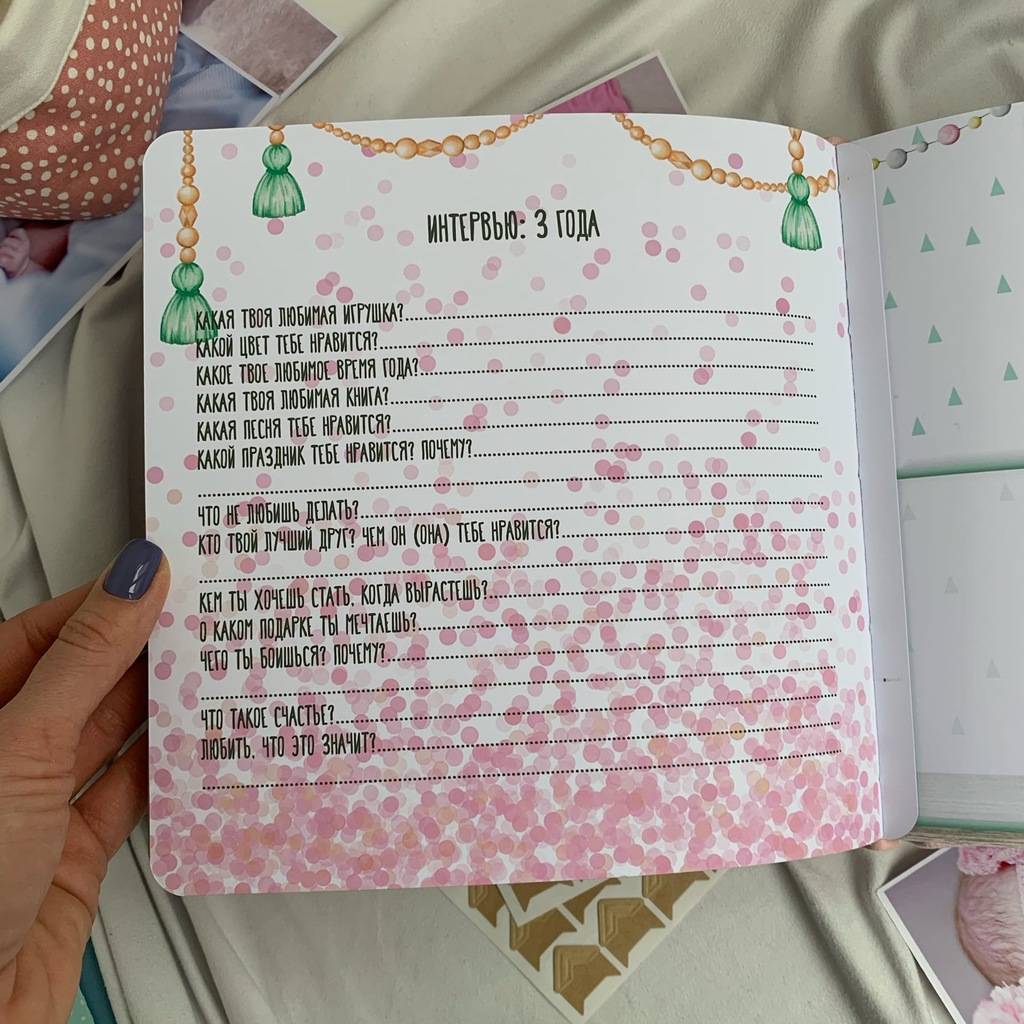 ИНТЕРВЬЮ: 3 ГОДА
КАКАЯ ТВОЯ ЛЮБИМАЯ ИГРУШКА?
КАКОЙ ЦВЕТ ТЕБЕ НРАВИТСЯ?
КАКОЕ ТВОЕ ЛЮБИМОЕ ВРЕМЯ ГОДА?
КАКАЯ ТВОЯ ЛЮБИМАЯ КНИГА?
КАКАЯ ПЕСНЯ ТЕБЕ НРАВИТСЯ?
КАКОЙ ПРАЗДНИК ТЕБЕ НРАВИТСЯ? ПОЧЕМУ?
ЧТО НЕ ЛЮБИШЬ ДЕЛАТЬ?
КТО ТВОЙ ЛУЧШИЙ ДРУГ? ЧЕМ ОН (ОНА) ТЕБЕ НРАВИТСЯ?
КЕМ ТЫ ХОЧЕШЬ СТАТЬ, КОГДА ВЫРАСТЕШЬ?
О КАКОМ ПОДАРКЕ ТЫ МЕЧТАЕШЬ?
ЧЕГО ТЫ БОИШЬСЯ? ПОЧЕМУ?
ЧТО ТАКОЕ СЧАСТЬЕ?
ЛЮБИТЬ, ЧТО ЭТО ЗНАЧИТ?